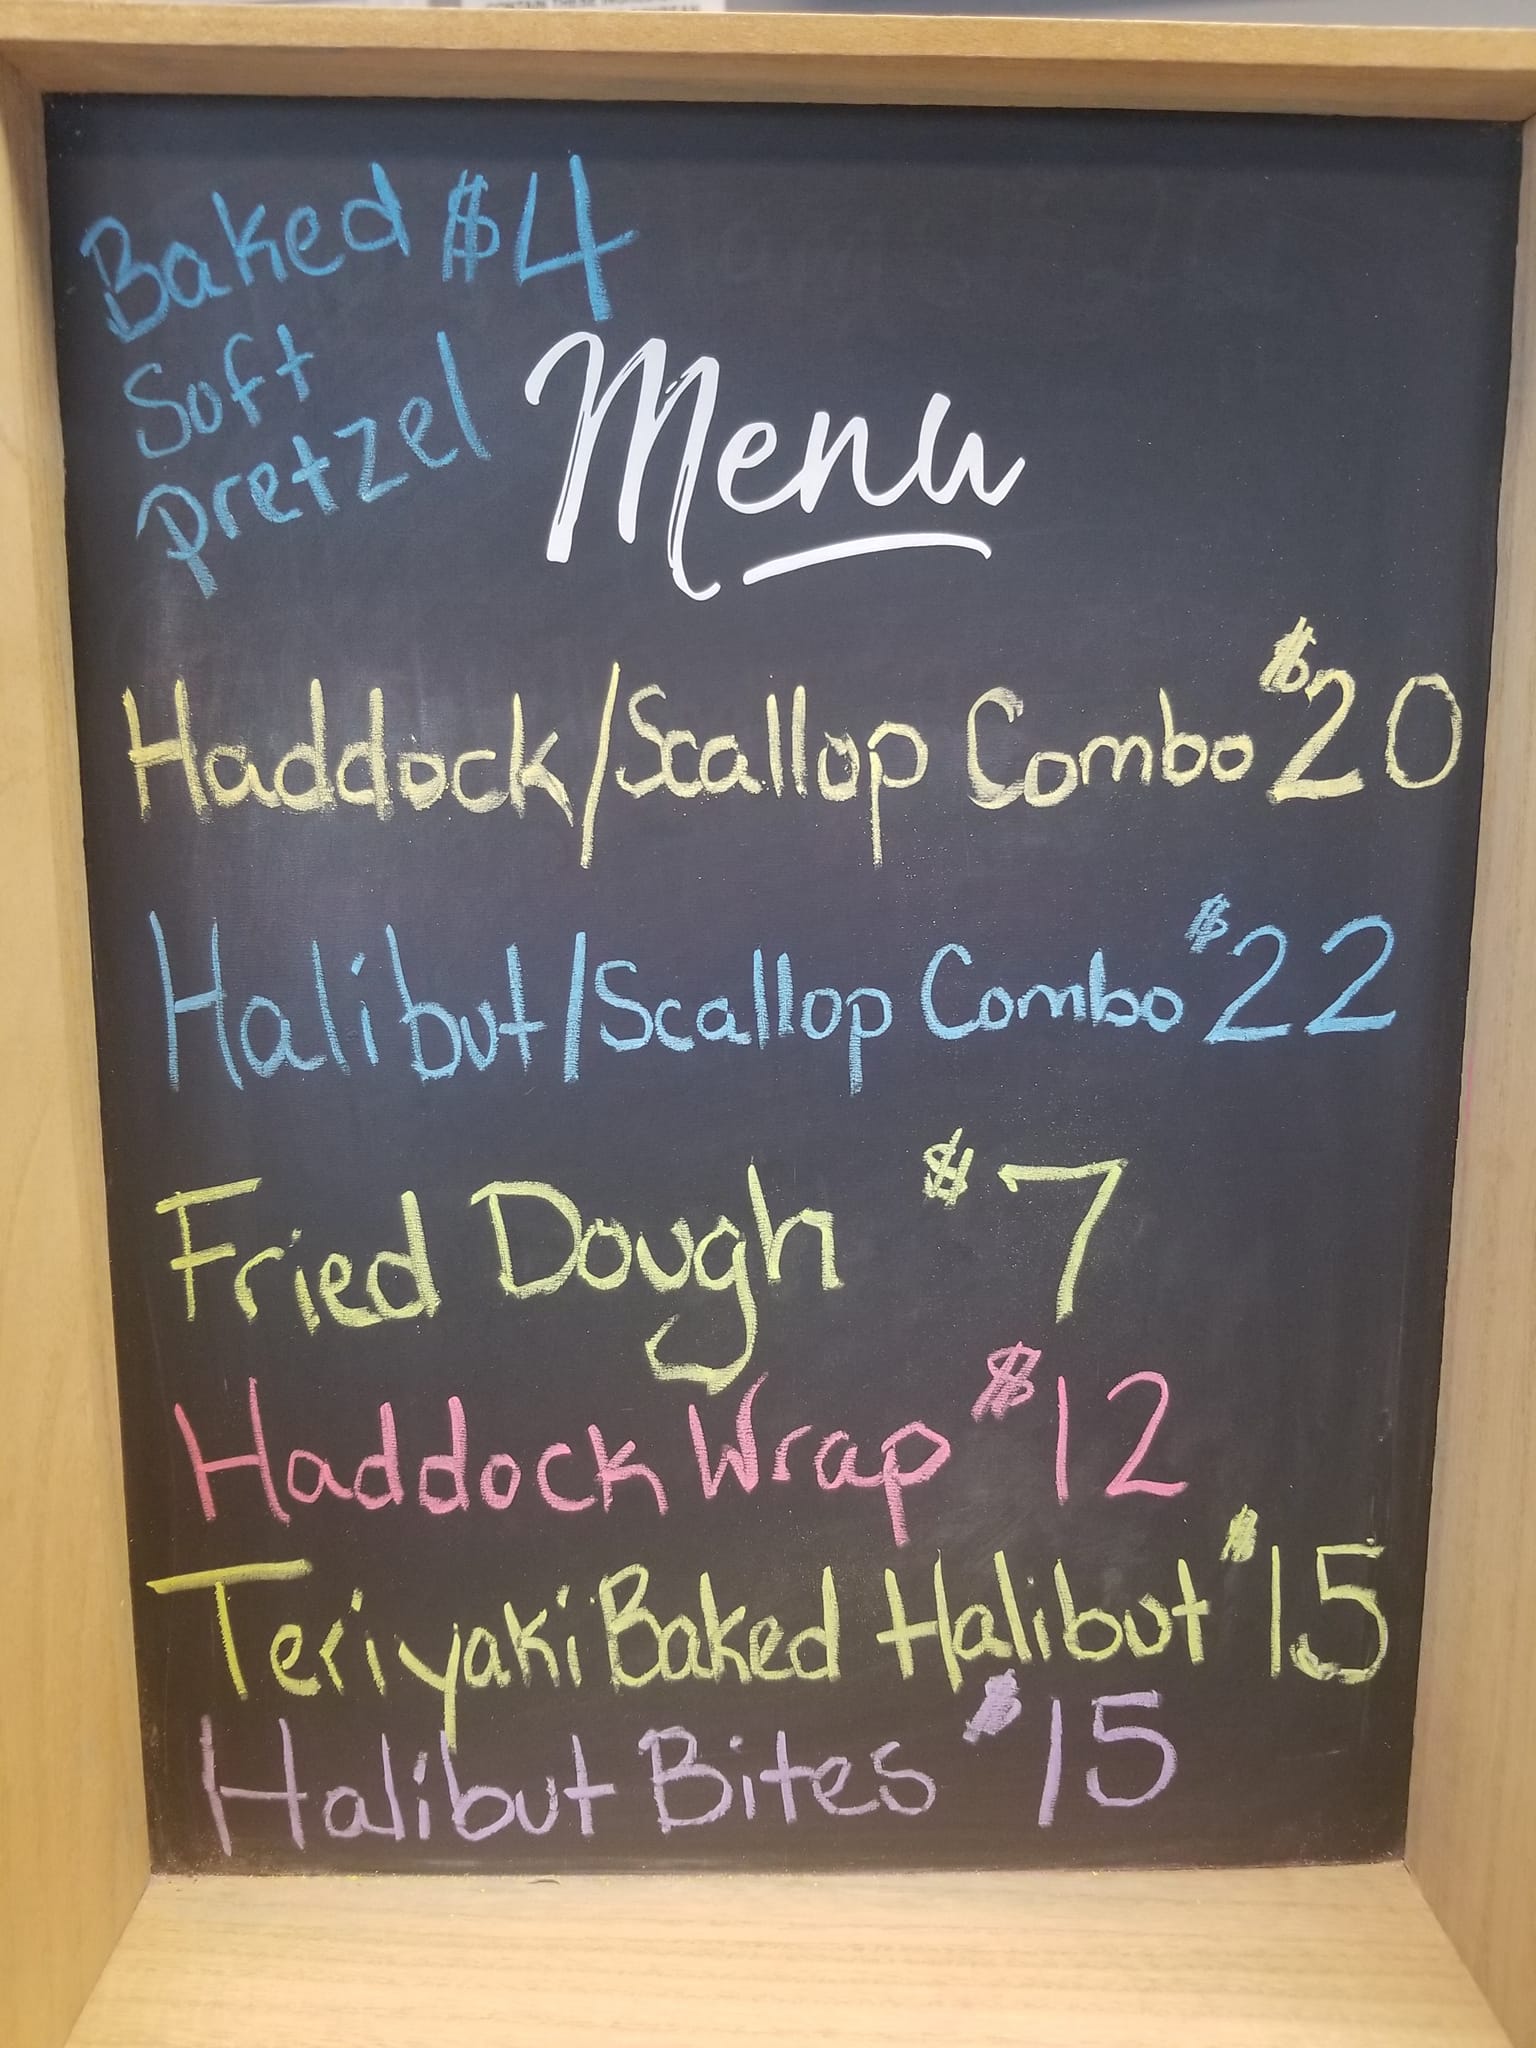 Baked $4
Soft
pretzel
Menu
Haddock/Scallop Combo $20
Halibut/Scallop Combo $22
Fried Dough $7
Haddock Wrap $12
Teriyaki Baked Halibut $15
Halibut Bites $15